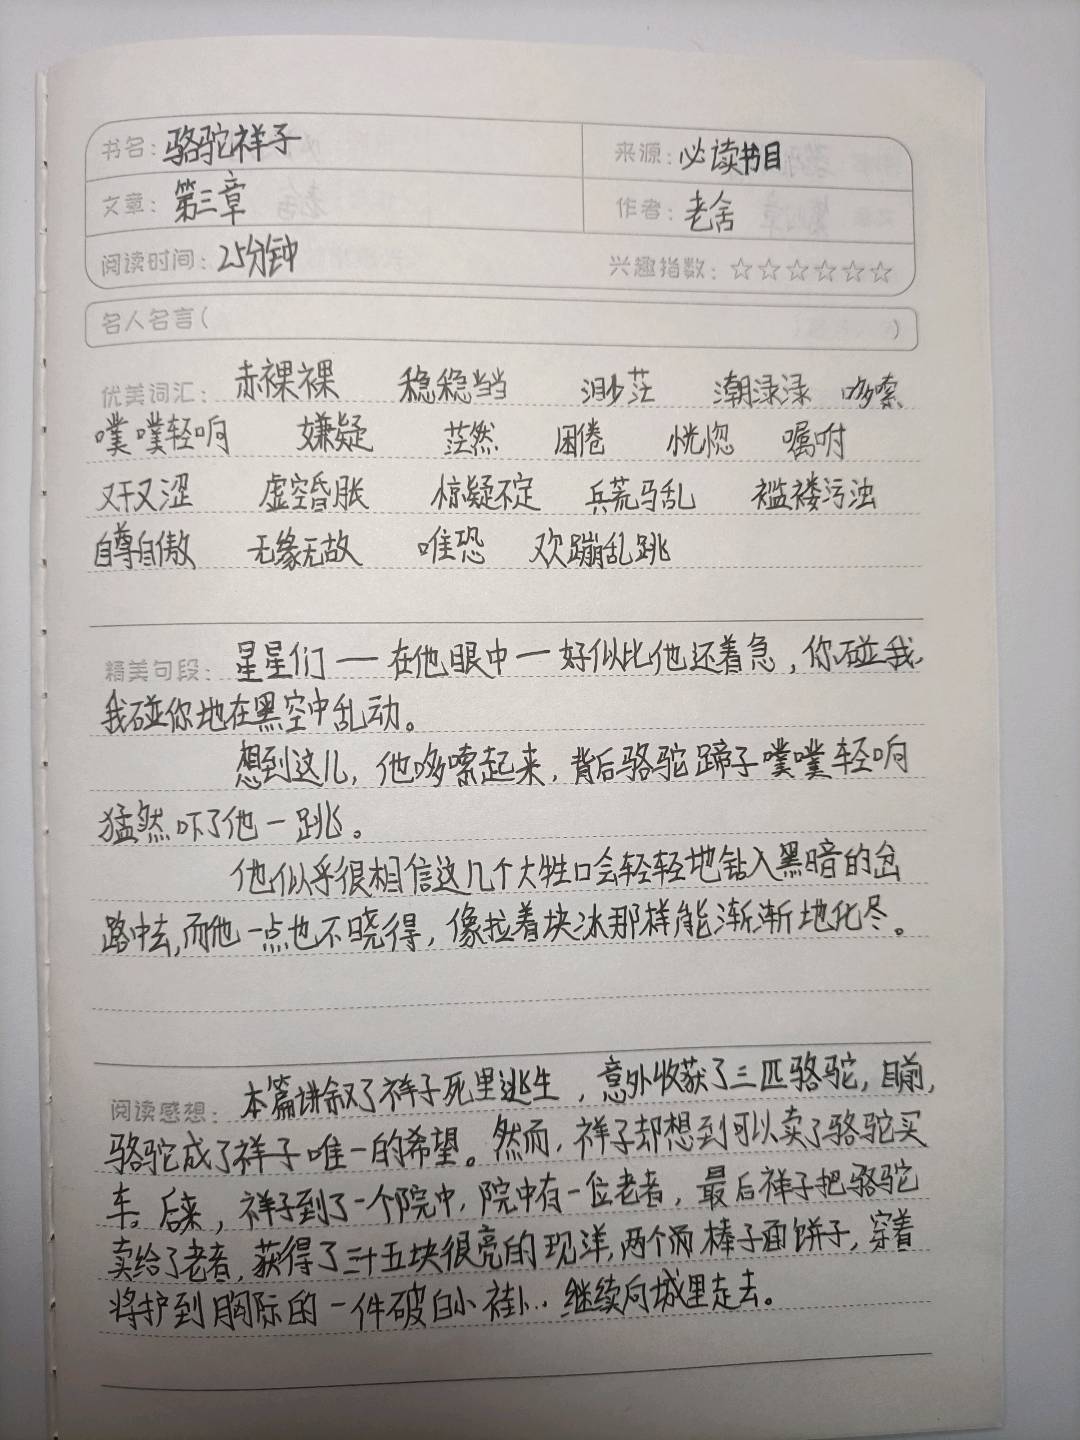 书名: 骆驼祥子 来源: 必读书目
文章: 第三章 作者: 老舍
阅读时间: 25分钟 兴趣指数: ☆☆☆☆☆☆
名人名言( )
优美词汇: 赤裸裸 稳稳当当 渺茫 潮渌渌 哆嗦
噗噗轻响 嫌疑 茫然 困倦 恍惚 嘱咐
又干又涩 虚空昏胀 惊疑不定 兵荒马乱 褴褛污浊
自尊自傲 无缘无故 唯恐 欢蹦乱跳
精美句段: 星星们一在他眼中一好似比他还着急，你碰我，
我碰你地在黑空中乱动。
想到这儿，他哆嗦起来，背后骆驼蹄子噗噗轻响
猛然吓了他一跳。
他似乎很相信这几个大牲口会轻轻地钻入黑暗的岔
路中去，而他一点也不晓得，像拉着块冰那样能渐渐地化尽。
阅读感想: 本篇讲叙了祥子死里逃生，意外收获了三匹骆驼，目前，
骆驼成了祥子唯一的希望。然而，祥子却想到可以卖了骆驼买
车。后来，祥子到了一个院中，院中有一位老者，最后祥子把骆驼
卖给了老者，获得了三十五块很亮的现洋，两个棒子面饼子，穿着
将护到胸际的一件破白小褂‥继续向城里走去。